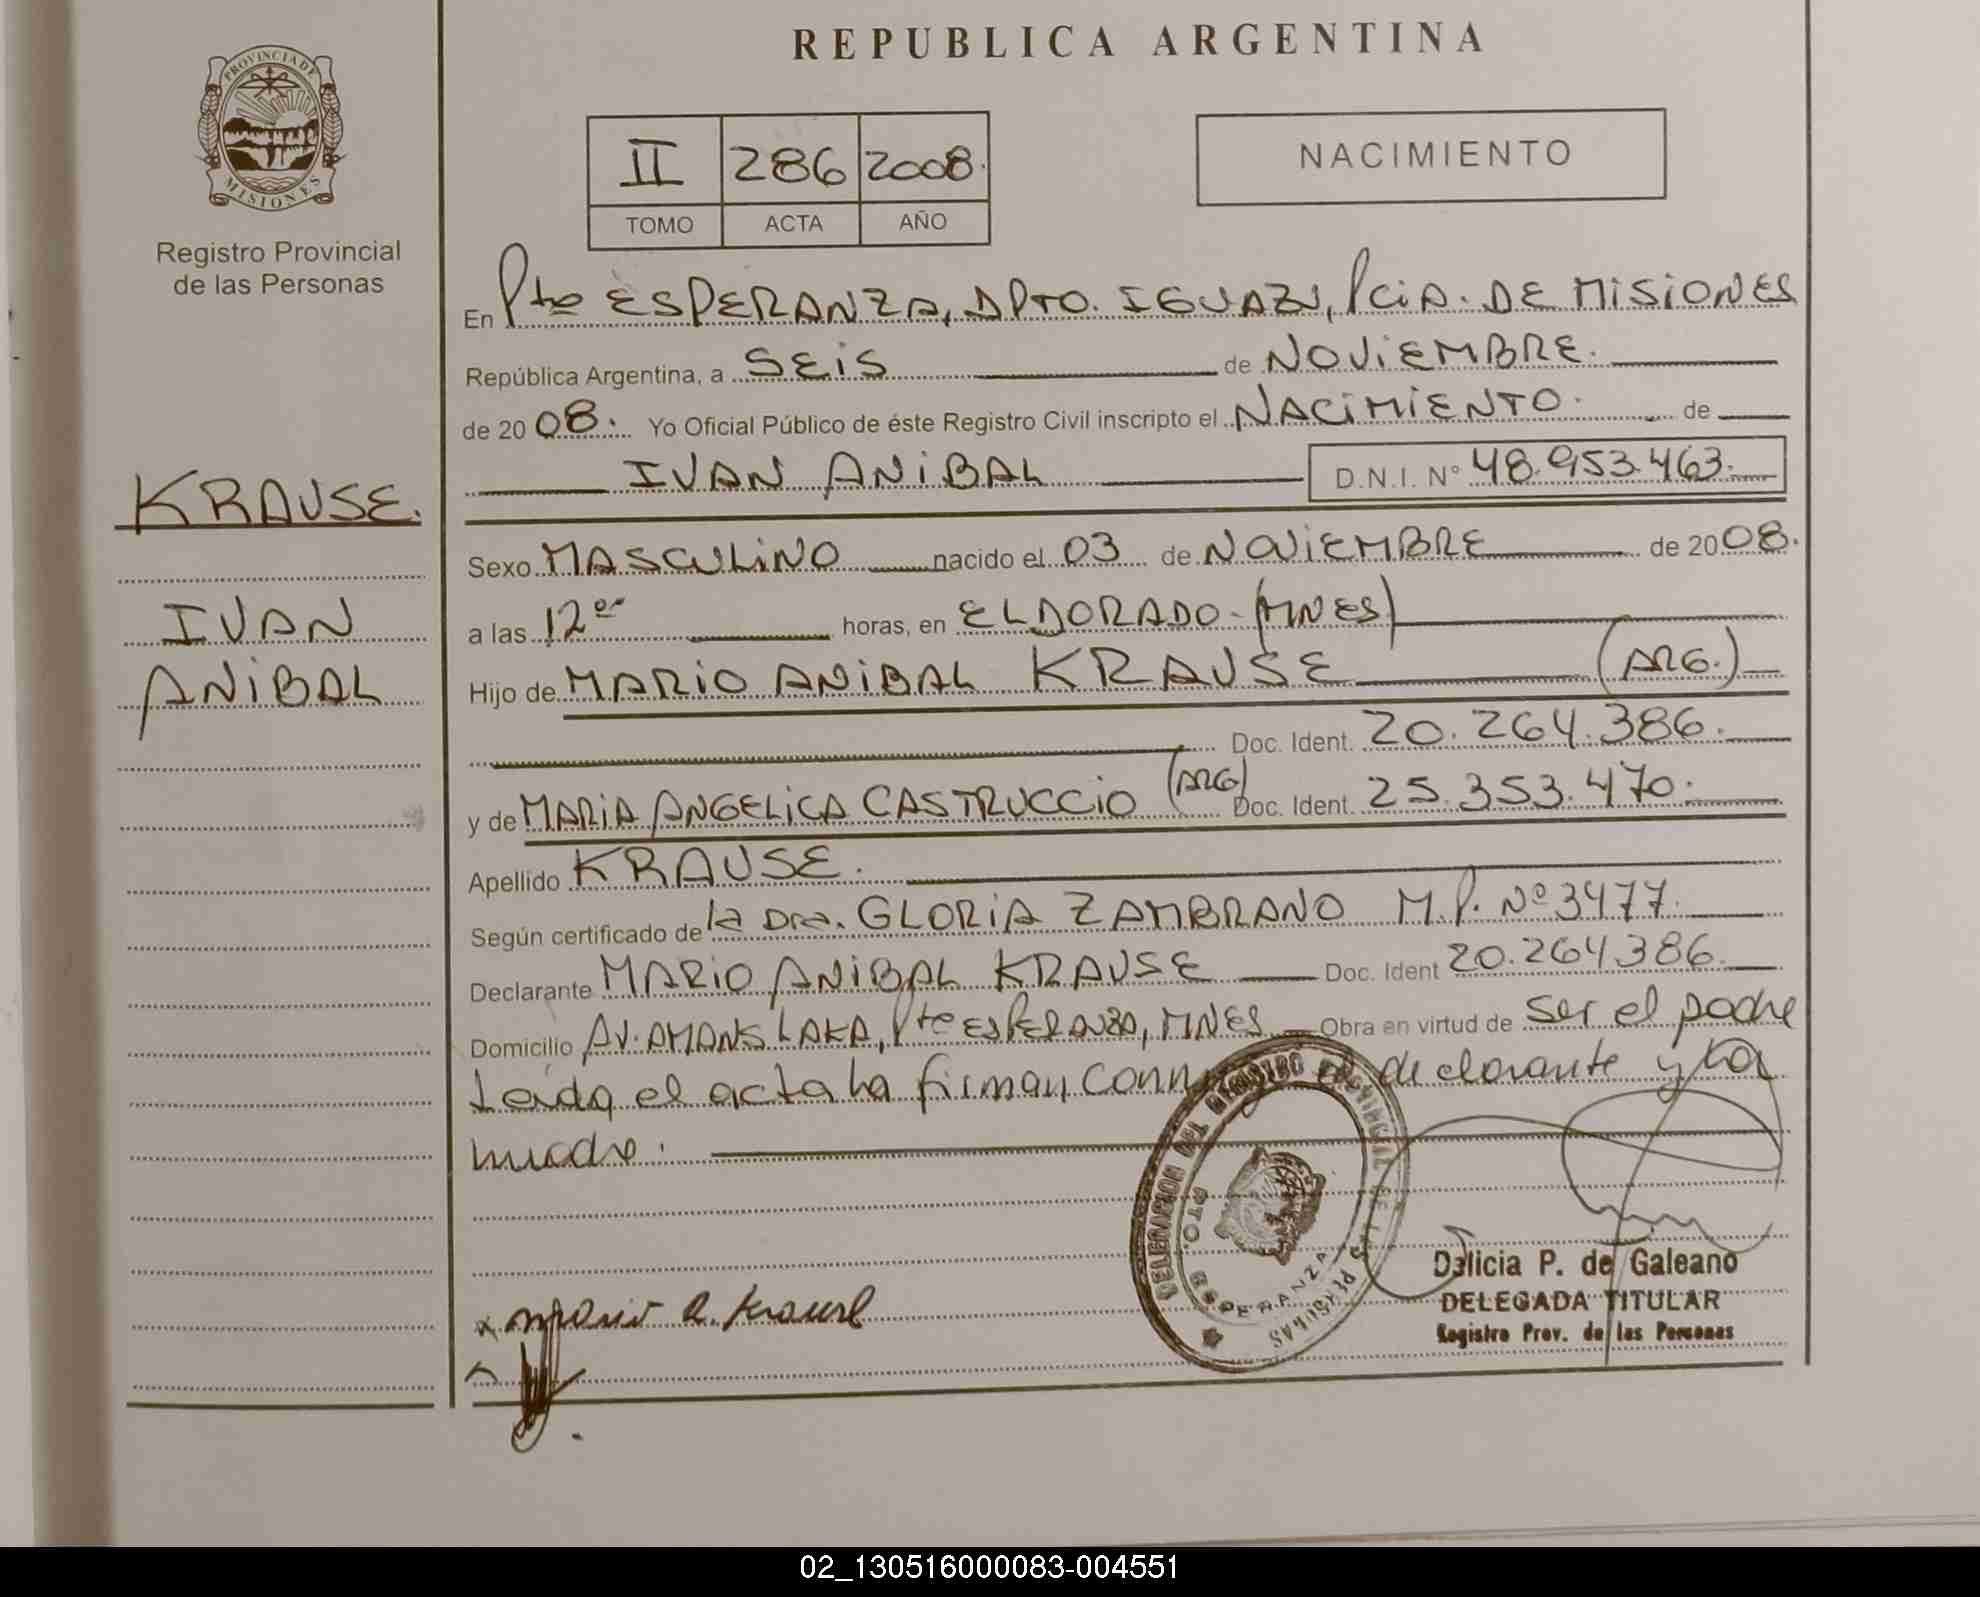 REPUBLICA ARGENTINA
PROVINCIA DE
MISIONES
Registro Provincial
de las Personas
II 286 2008.
TOMO ACTA AÑO
NACIMIENTO
En Pto ESPERANZA, DPTO. IGUAZU, PCIA. DE MISIONES
República Argentina, a SEIS de NOVIEMBRE.
de 2008. Yo Oficial Público de éste Registro Civil inscripto el NACIMIENTO. de
IVAN ANIBAL D.N.I. N° 48.953.463.
KRAUSE.
IVAN
ANIBAL
Sexo MASCULINO nacido el 03 de NOVIEMBRE de 2008.
a las 12 horas, en ELDORADO-(MNES)
Hijo de MARIO ANIBAL KRAUSE (ARG.)
Doc. Ident. 20.264.386.
y de MARIA ANGELICA CASTRUCCIO (ARG) Doc. Ident. 25.353.470.
Apellido KRAUSE.
Según certificado de la Dra. GLORIA ZAMBRANO M.P. Nº 3477.
Declarante MARIO ANIBAL KRAUSE Doc. Ident 20.264.386.
Domicilio AV. Pto ESPERANZA, MNES Obra en virtud de ser el padre
Leida el acta la firman el declarante y la
madre.
DELEGACION DEL REGISTRO PROVINCIAL DE LAS PERSONAS
PTO. ESPERANZA
x Mario A. Krause
Delicia P. de Galeano
DELEGADA TITULAR
Registro Prov. de las Personas
02_130516000083-004551